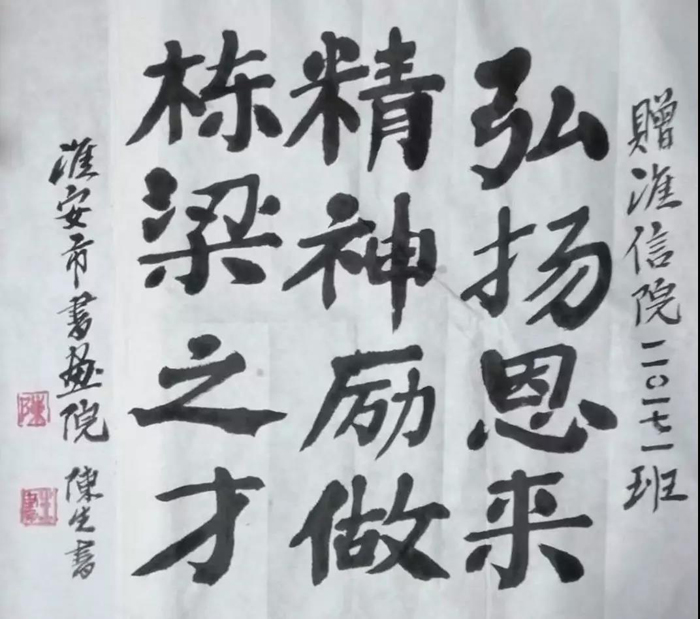 贈淮信院二〇一七一班
弘扬恩来
精神励做
栋梁之才
淮安市書画院 陳生書